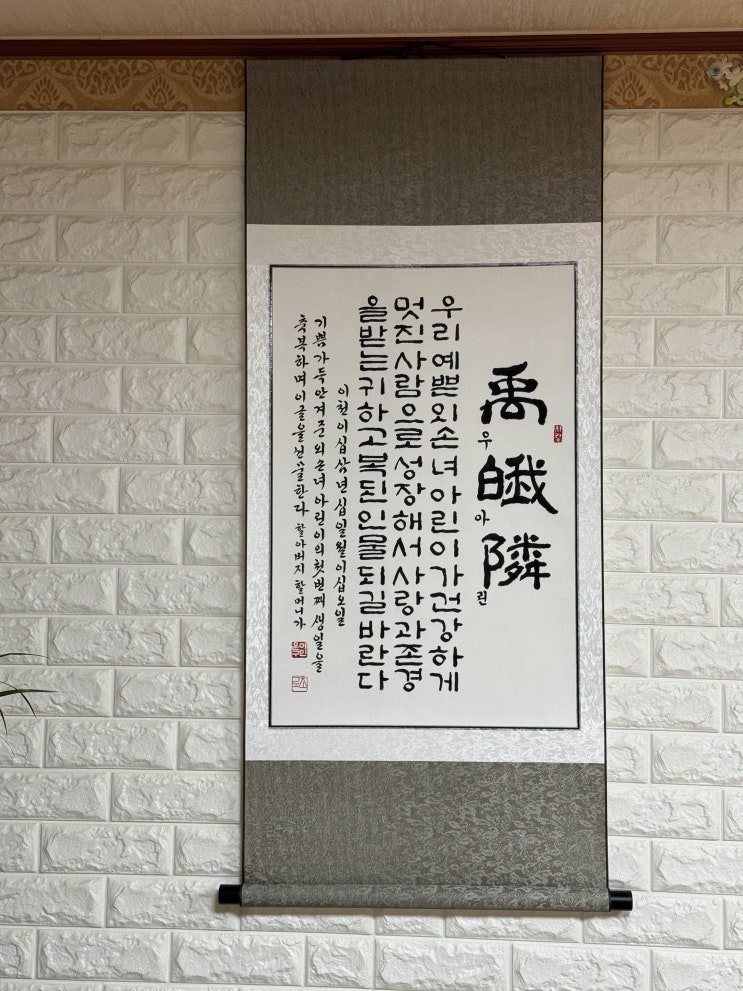 禹皒隣
우아린
우리예쁜외손녀아린이가건강하게
멋진사람으로성장해서사랑과존경
을받는귀하고복된인물되길바란다
이천이십삼년십일월이십오일
기쁨가득안겨준외손녀아린이의첫번째생일을
축복하며이글을선물한다 할아버지 할머니가